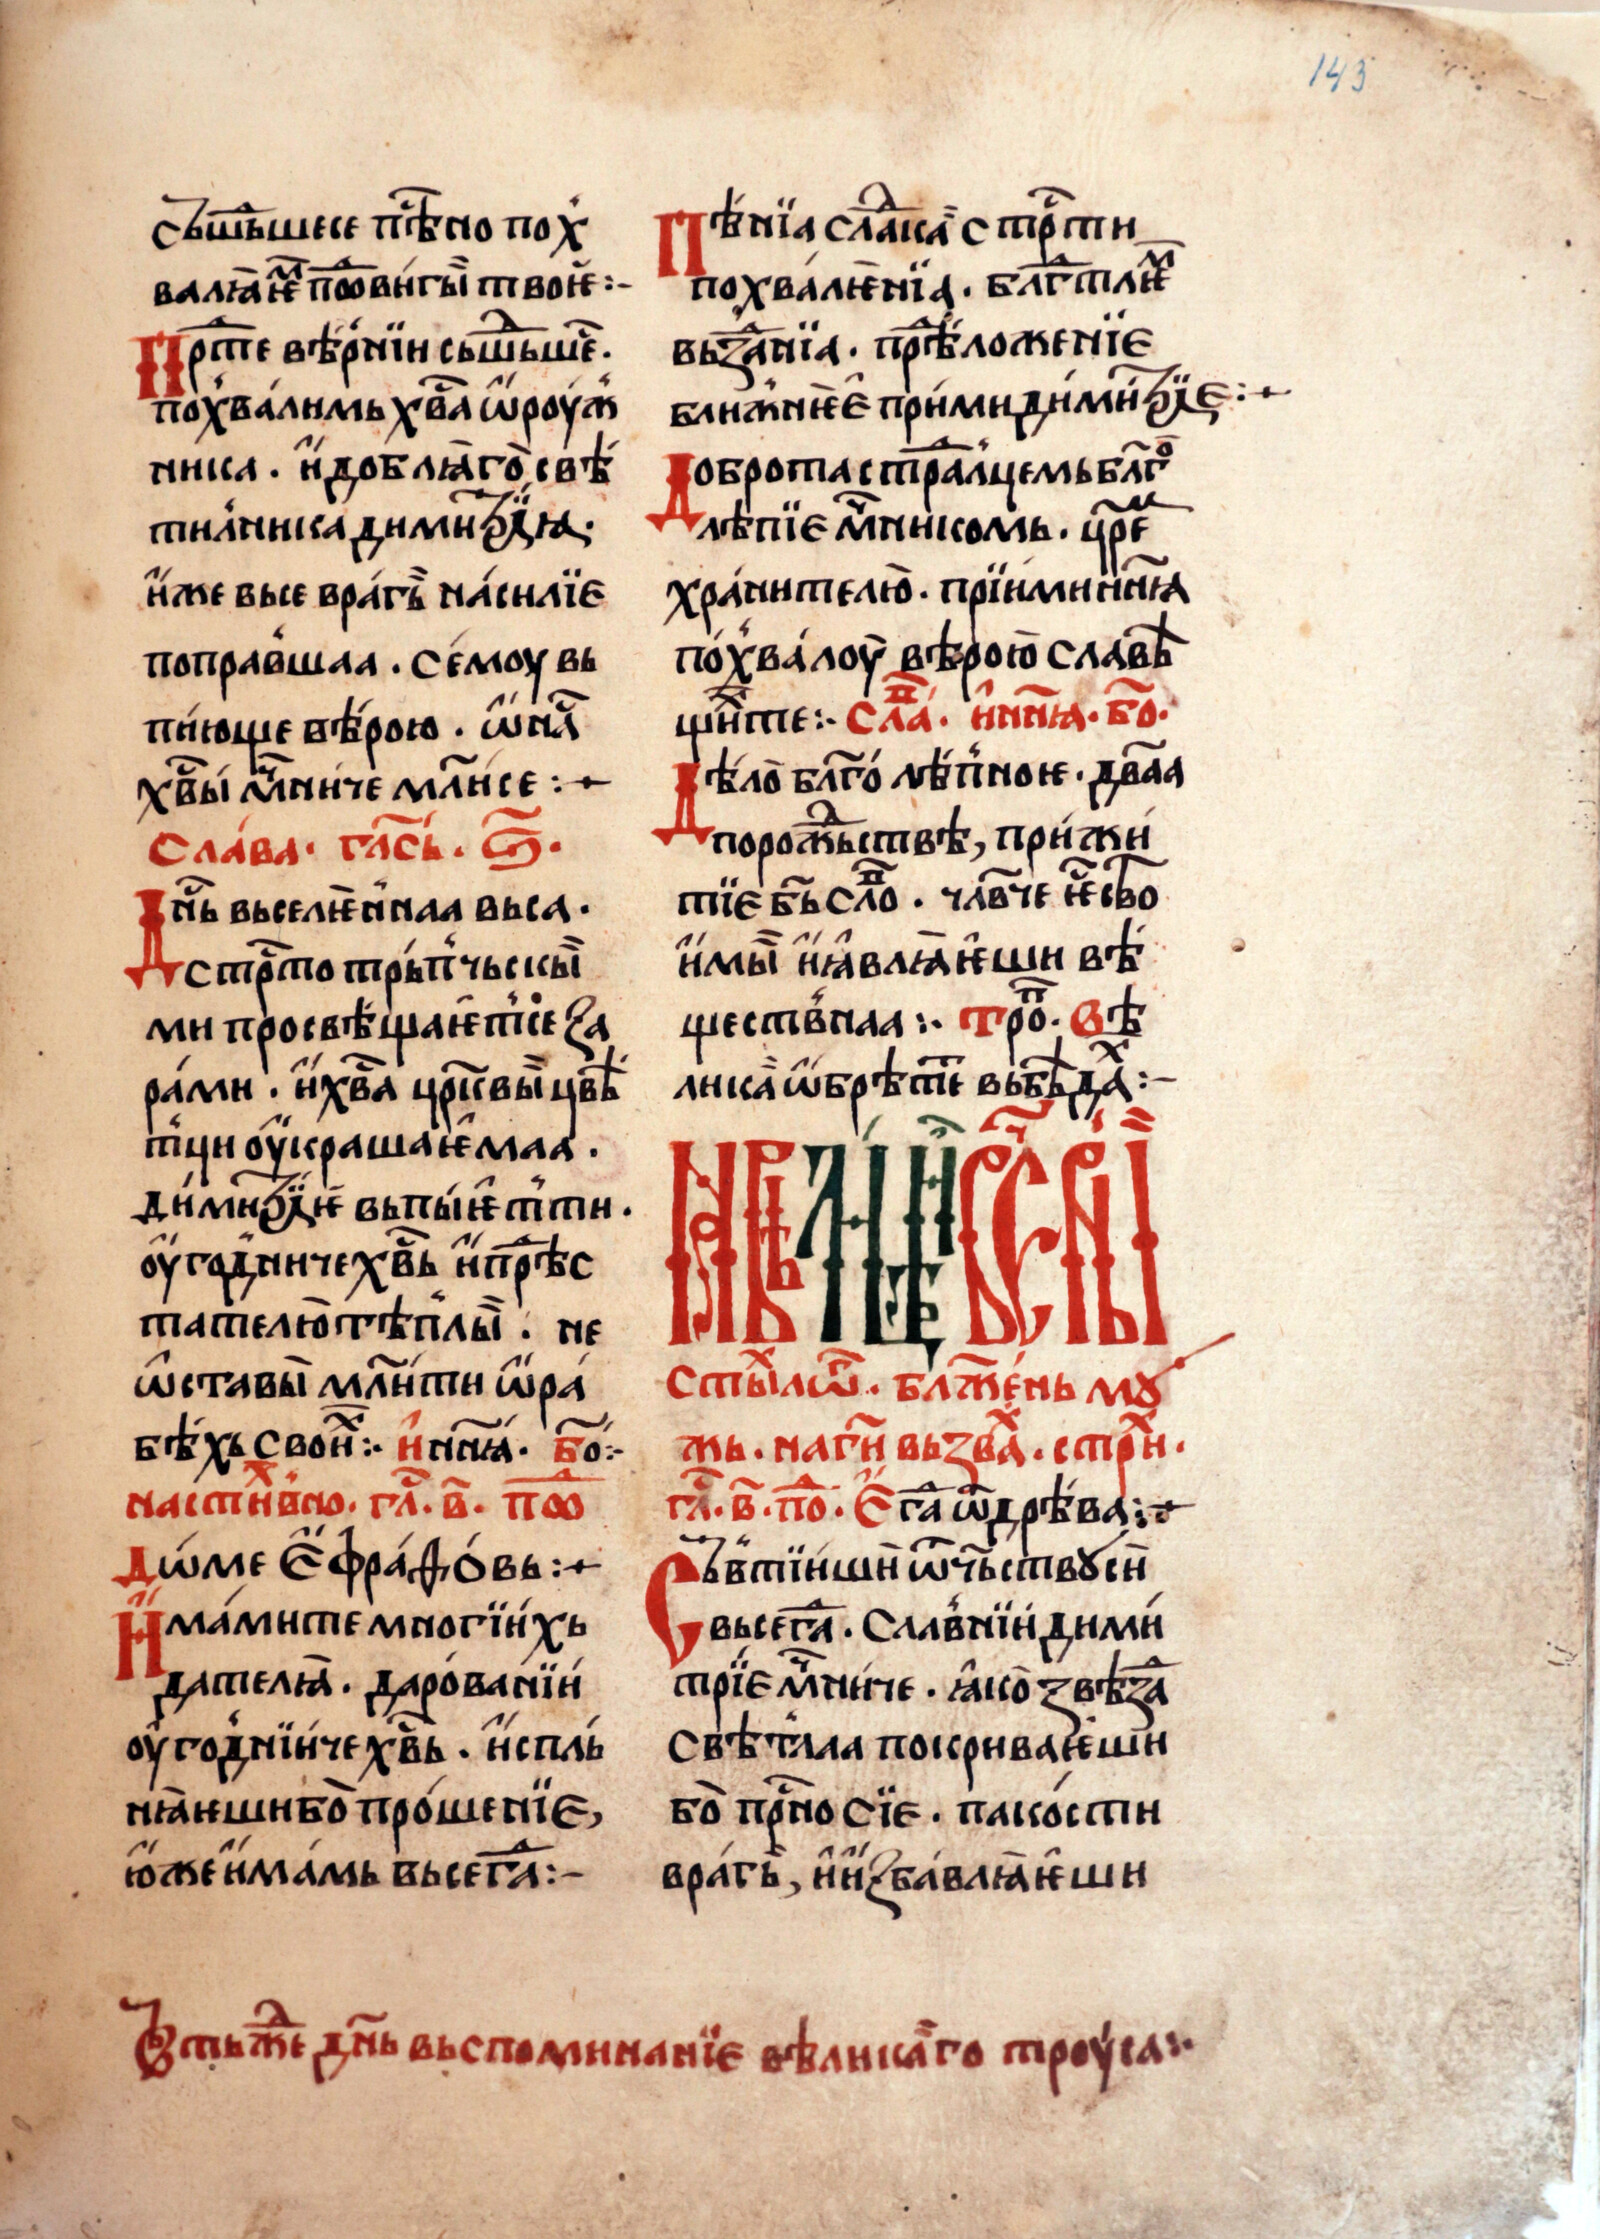 143
сьшьшесе пѣⷭ҇но пох
валꙗем пⷣовигы твое :-
Прⷣѣте вѣрнїи сьшьⷣше.
похвалимь хⷭ҇ва ѿроуж
ника. и доблꙗго свѣ
тилника димитрїа.
иже все врагь насилїе
поправшаа. семоу вь
пиюще вѣрою. ѿ на
хⷭ҇вы мⷱ҇ниче мл҃исе :-
слава. глⷭ҇ь. ѕ҃.
Дн҃ь вьселѥннаа вьса.
стрⷭ҇то трьпчьскы
ми просвѣщаѥтсе за
рами. и хⷭ҇ва црк҃вы цвѣ
тци оукрашаѥмаа.
димитрїе вьпыѥтти.
оугодниче хⷭ҇вь и прѣⷣс
тателю тѣплы. не
ѡставы мл҃ити ѡ ра
бѣхь своиⷯ:. и нн҃ꙗ. бо҃:-
настиⷯвно. гл҃. в҃. поⷣ
дѡме еѵфраѳовь :-
Имамите многїихь
дателꙗ. дарованїи
оугодниче хⷭ҇вь. испль
нꙗѥши бо прошенїе,
юже имамь вьсегⷣа :-
Пѣнїа слаⷣка стрⷭ҇ти
похвалѥнїа. блгⷣтлѥⷨ
вьзⷣанїа. прѣⷣложенїе
ближнѥе прими димитрїе :-
Доброта страⷣлцемь блг҃о
лѣпїе мⷱ҇никомь. црⷭ҇еⷨ
хранителю. прїими нн҃ꙗ
похвалоу вѣрою славе
щиⷯте :. слаⷡ. и нн҃ꙗ. бо҃.
Дѣло блг҃олѣпное. дв҃аа
порожⷣьствѣ, при жи
тїе бь҃ слⷪво. чл҃вче ѥство
имы и ꙗвлꙗѥши вѣ
ществнаа :. троⷫ. Вѣ
лика ѡбрѣте вь бѣдаⷯ :-
стыⷯ ѿⷰ. блажень моу
жь. на гⷭ҇и вьзваⷯ. стрⷯи.
гл҃. в҃. поⷣ. Егⷣа ѿ дрѣва :-
Сьвⷮтїиши ѿчьству си
вьсегⷣа. славнїи дими
трїе мⷱ҇ниче. ꙗко звѣзⷣа
свѣтлаа покриваѥши
бо прⷭ҇но сїе. пакости
врагь, и избавлꙗѥши
Вь тьжⷣе дн҃ь вьспоминанїе вѣликаго троуса :.